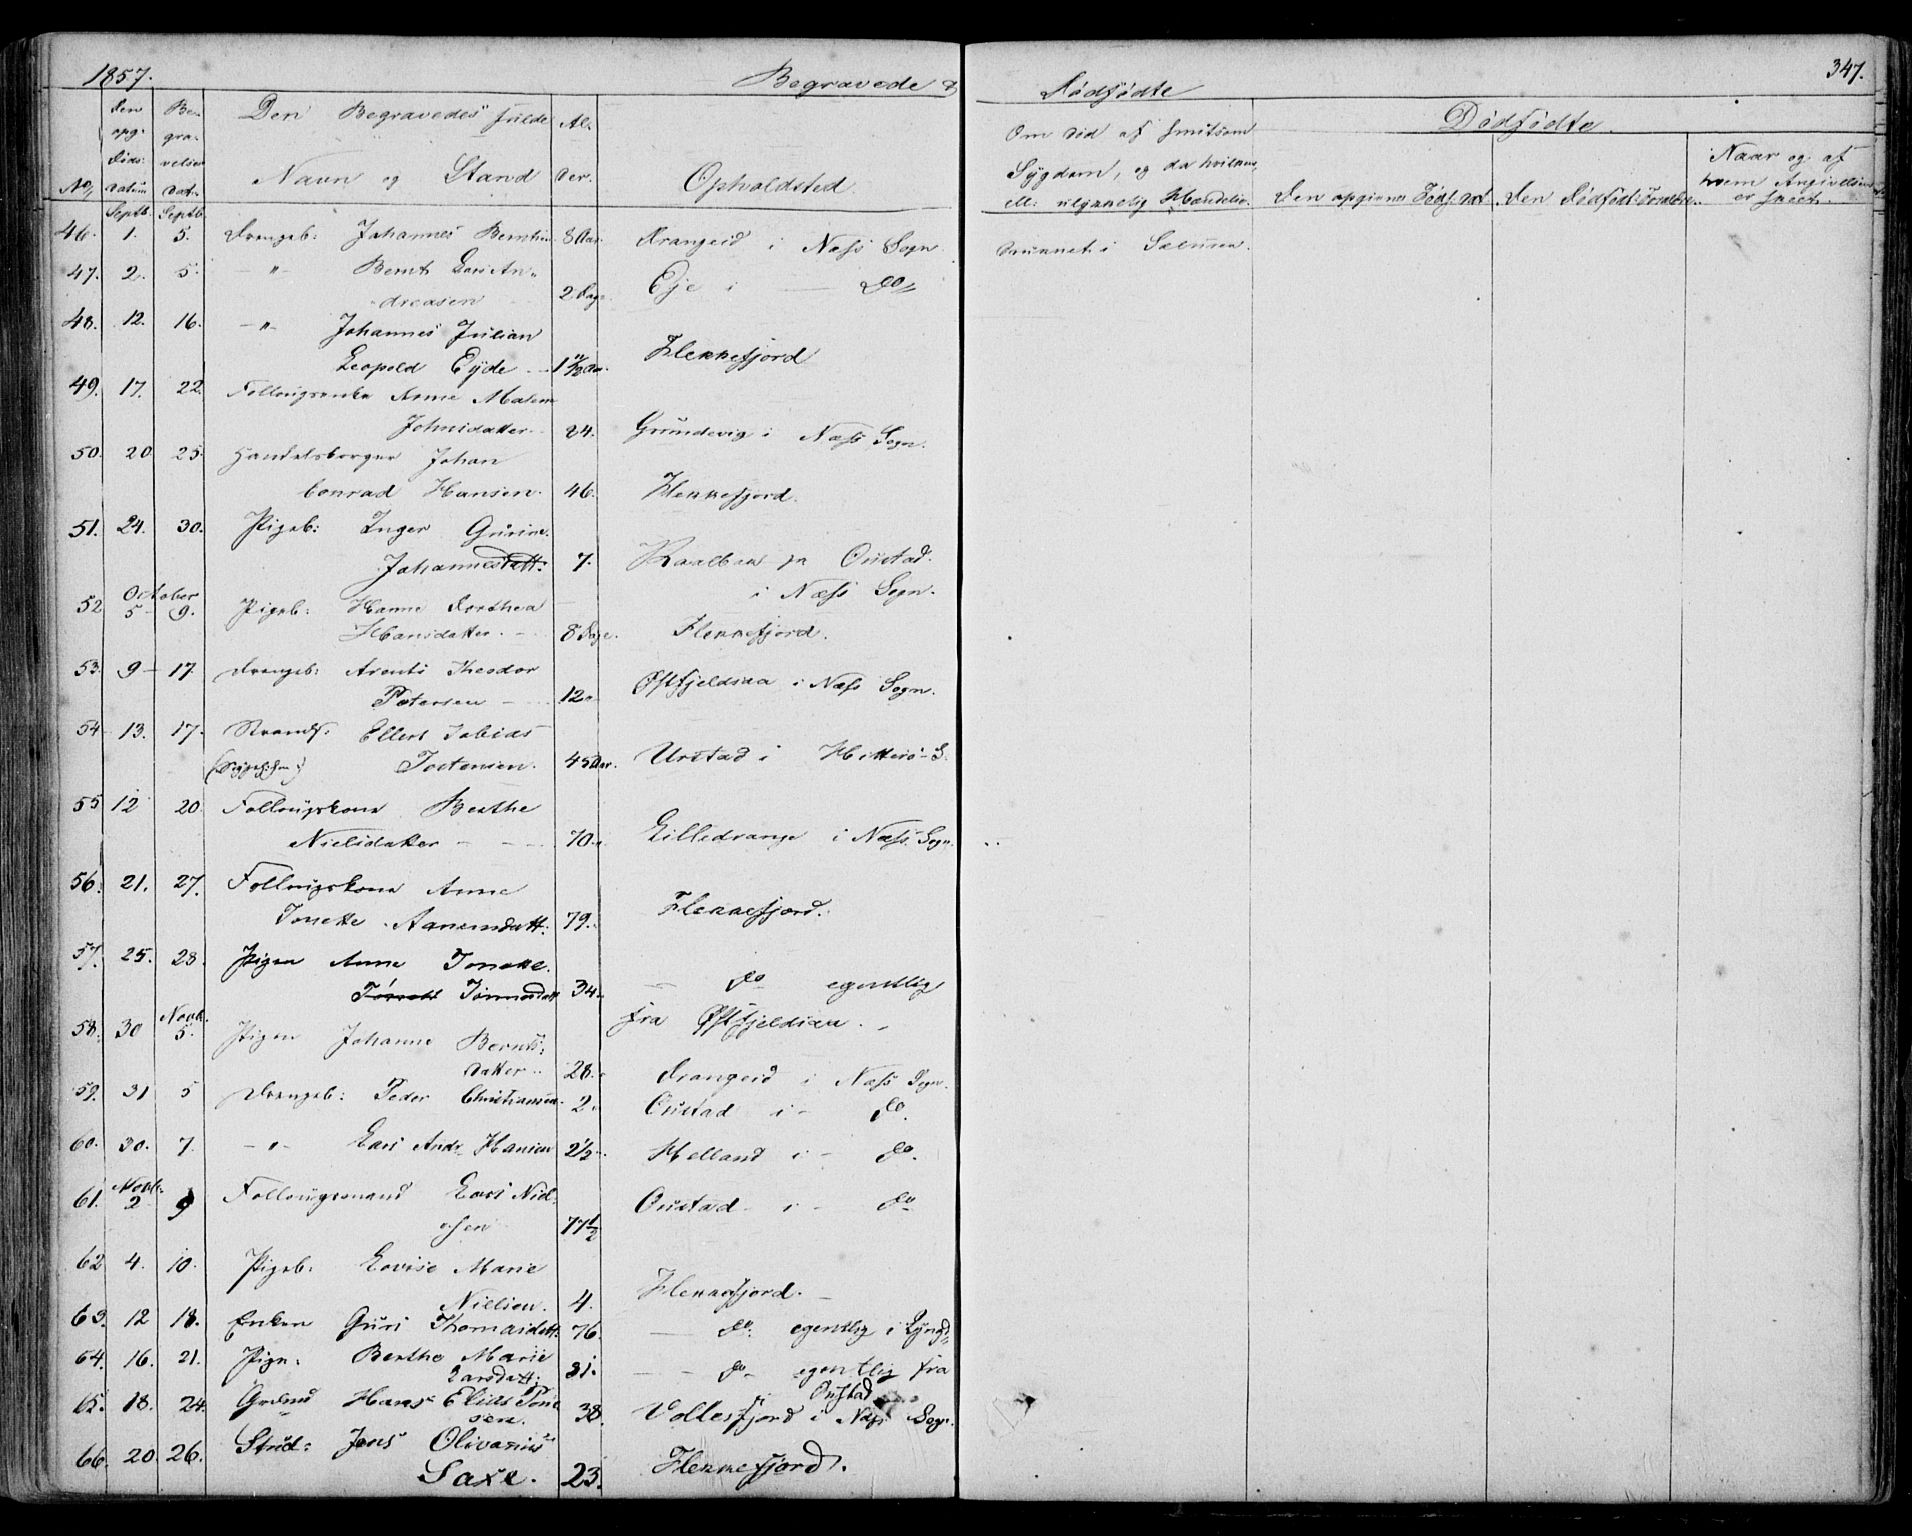 1857.
Begravede &
Dødfødte
347.
No,
Den opg. Døds: datum
Be- gra- velses Dat:
Den Begravedes fulde Navn og Stand
Al- der.
Opholdsted
Om død af smitsom Sygdom, og da hvilken, ell: ulykkelig Hændelse.
Dødfødte.
Den opgivne Føds. Dat.
Den Dødfødtes Forældre.
Naar og af hvem Angivelsen er skeet.
Septb. Septb.
46. 1. 5. Drengeb: Johannes Berntsen 8 Aar. Drangeid i Næss Sogn. Druknet i
47. 2. 5. -"- Bernt Lars An-
dreasen 2 Dage Eje i — do
48. 12. 16. -"- Johannes Julian
Leopold Eyde 1 ½ Aar. Flekkefjord
49. 17. 22. Anne Malene
Johnsdatter. 24. Grundevig i Næss Sogn.
50. 20 25. Handelsborger Johan
Conrad Hansen. 46. Flekkefjord.
51. 24. 30. Pigeb: Inger Gurine
Johannesdatt: 7. paa Oustad.
i Næss Sogn.
October
52 5 - 9. Pigeb: Hanne Dorthea
Hansdatter. 8 Dage. Flekkefjord.
53. 9 - 17. Drengeb: Arents Theodor
Petersen 12 " Østfjeldsaa i Næss Sogn.
54 13. 17. Strands. Ellert Tobias
Tostensen. 45 Aar. Urstad i Hitterø S.
55 12 20. Follougskone Berthe
Nielsdatter 70. Lilledrange i Næss Sogn.
56. 21. 27. Follougskone Anne
Tonette Aanensdatt: 79. Flekkefjord.
57. 25. 28. Pigen Anne Tonette
Tønnesdatt 34. do egentlig
fra Østfjeldsaa.
Novb.
58. 30 5. Pigen Johanne Bernts-
datter 28. Drangeid i Næss Sogn.
59. 31 5 Drengeb: Peder Christiansen 2 Oustad i - do.
60. 30. 7. -"- Lars Andr. Hansen 2½ Helland i - do.
Novb.
61. 2 9 Follougsmand Lars Niel-
sen 77½ Oustad i - do
62 4. 10. Pigeb. Lovise Marie
Nielsen. 4. Flekkefjord.
63. 12 18. Enken Guri Thomasdatt. 76. — do. egentlig i Lyngd.
64. 16. 21. Pigen: Berthe Marie
Larsdatt: 31. — do egentlig fra
Oustad
65. 18. 24. Hans Elias Tøn-
sen. 38. Vollesfjord i Næss Sogn.
66. 20. 26. Stud: Jens Olivarius
Saxe. 23. Flekkefjord.